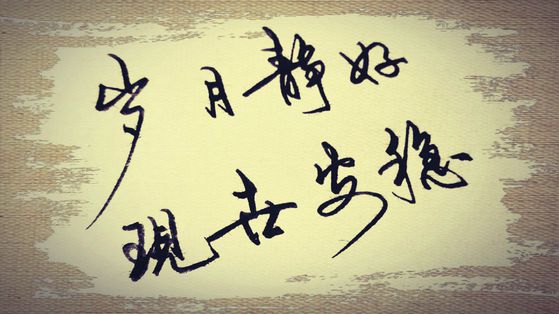 岁月静好
現世安稳